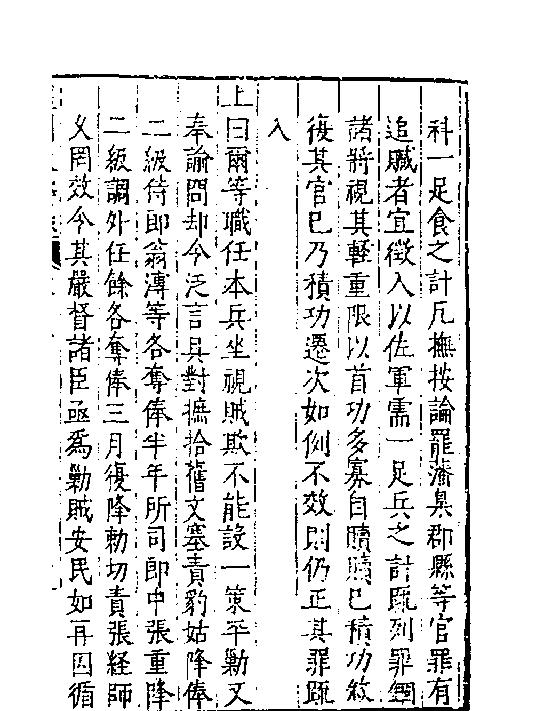 科一足食之計凡撫按論罷藩臬郡縣等官罪有
追贓者宜徵入以佐軍需一足兵之計疏列罪繝
諸將視其輕重限以首功多寡自贖贖已積功敘
復其官已乃積功遷次如例不效則仍正其罪疏
入
上曰爾等職任本兵坐視賊欺不能設一策平勦又
奉諭問却今泛言具對摭拾舊文塞責豹姑降俸
二級侍郎翁溥等各奪俸半年所司郎中張重降
二級調外任餘各奪俸三月復降勑切責張経師
久罔效令其嚴督諸臣亟爲勦賊安民如再因循